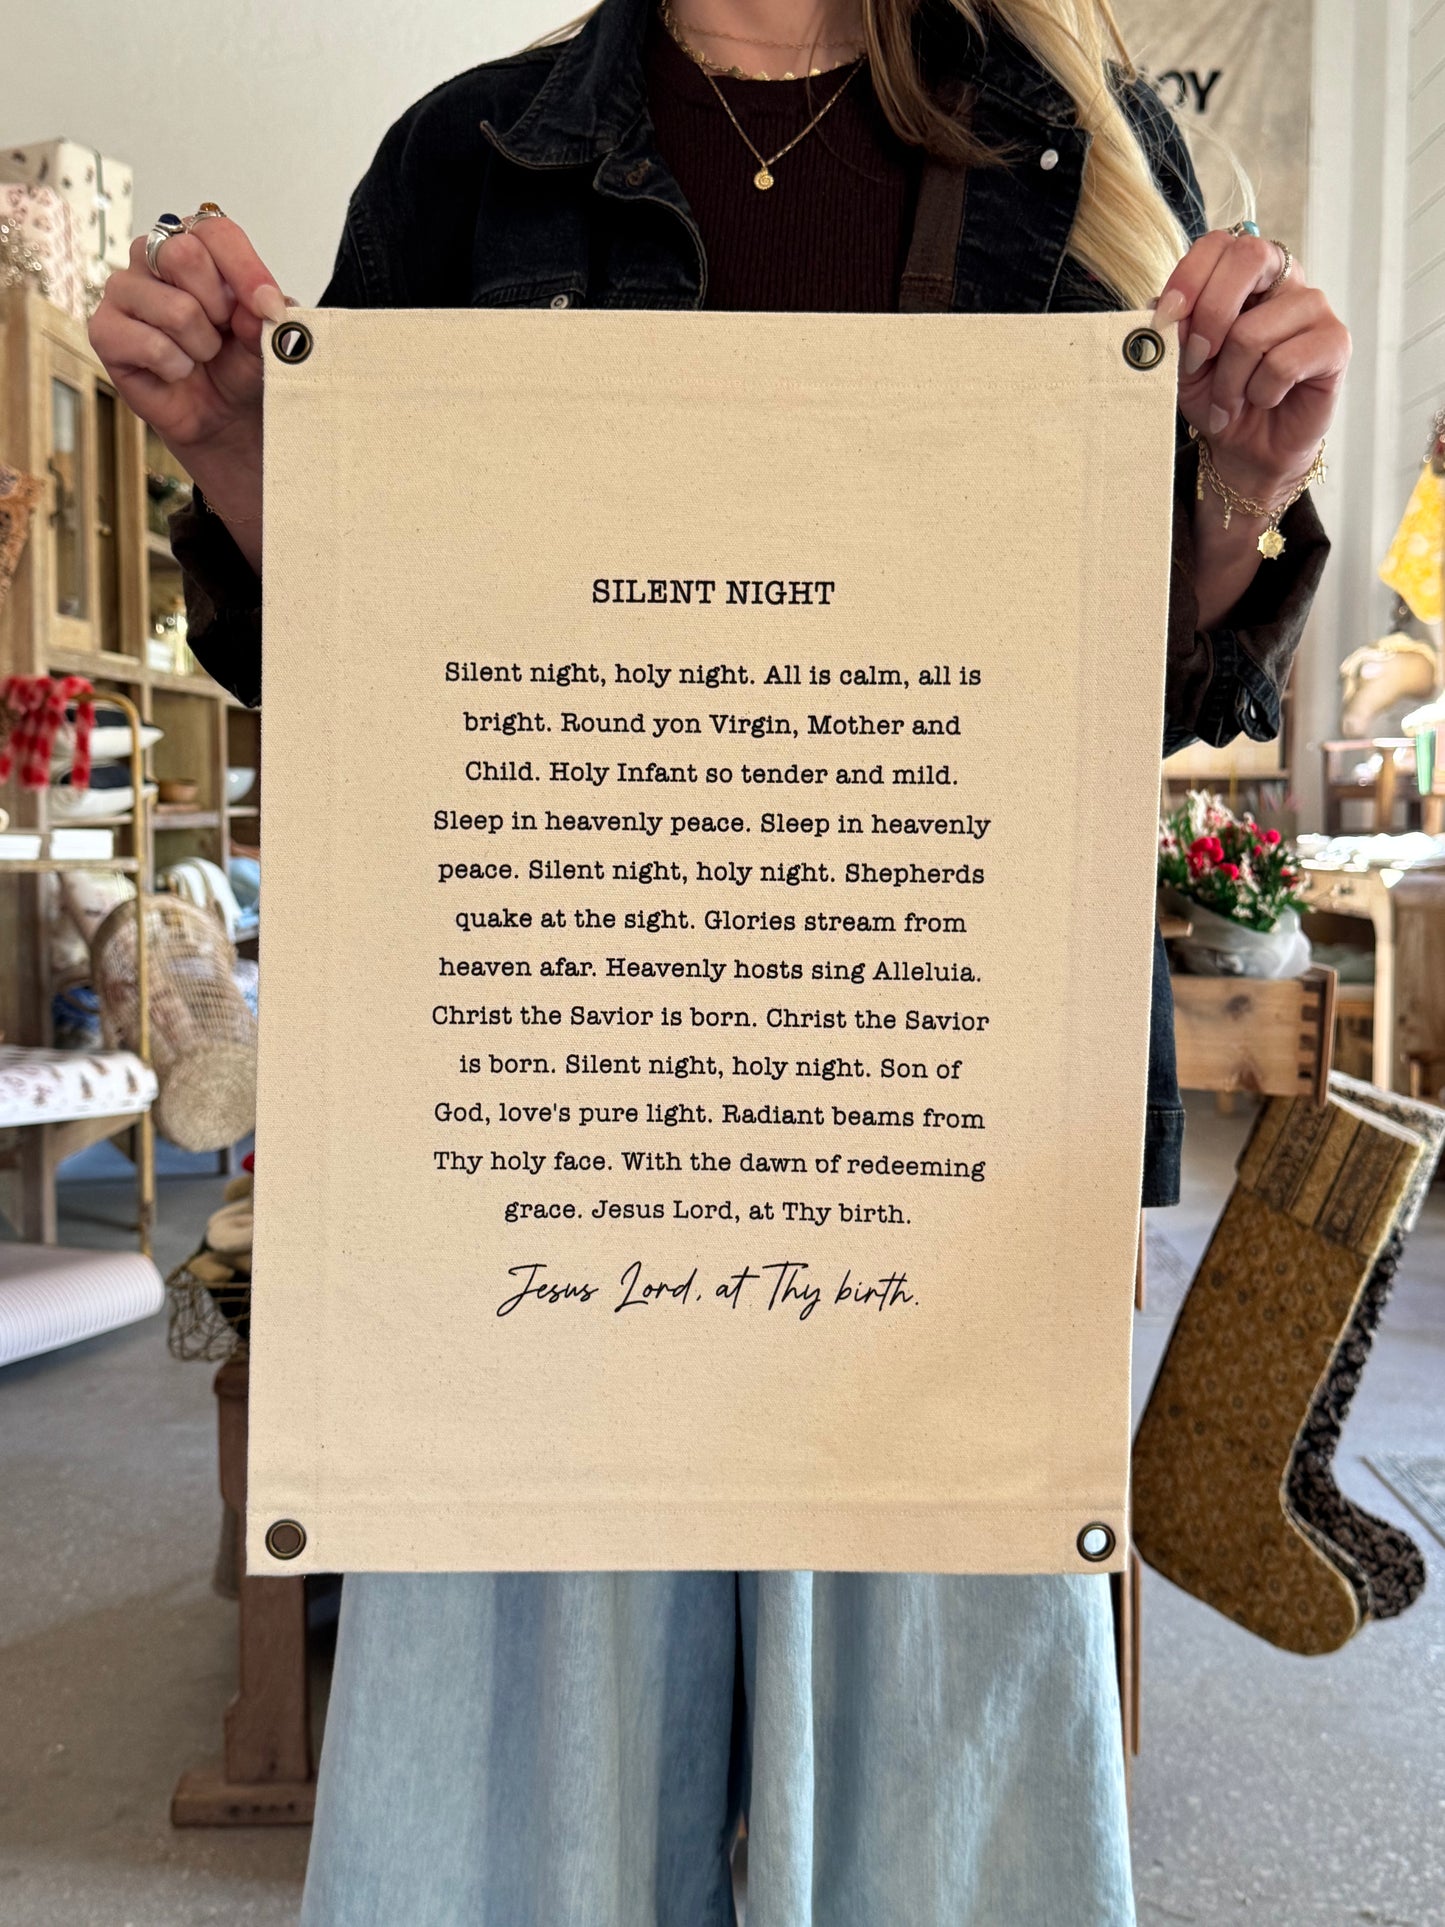 OY
SILENT NIGHT
Silent night, holy night. All is calm, all is
bright. Round yon Virgin, Mother and
Child. Holy Infant so tender and mild.
Sleep in heavenly peace. Sleep in heavenly
peace. Silent night, holy night. Shepherds
quake at the sight. Glories stream from
heaven afar. Heavenly hosts sing Alleluia.
Christ the Savior is born. Christ the Savior
is born. Silent night, holy night. Son of
God, love's pure light. Radiant beams from
Thy holy face. With the dawn of redeeming
grace. Jesus Lord, at Thy birth.
Jesus Lord, at Thy birth.